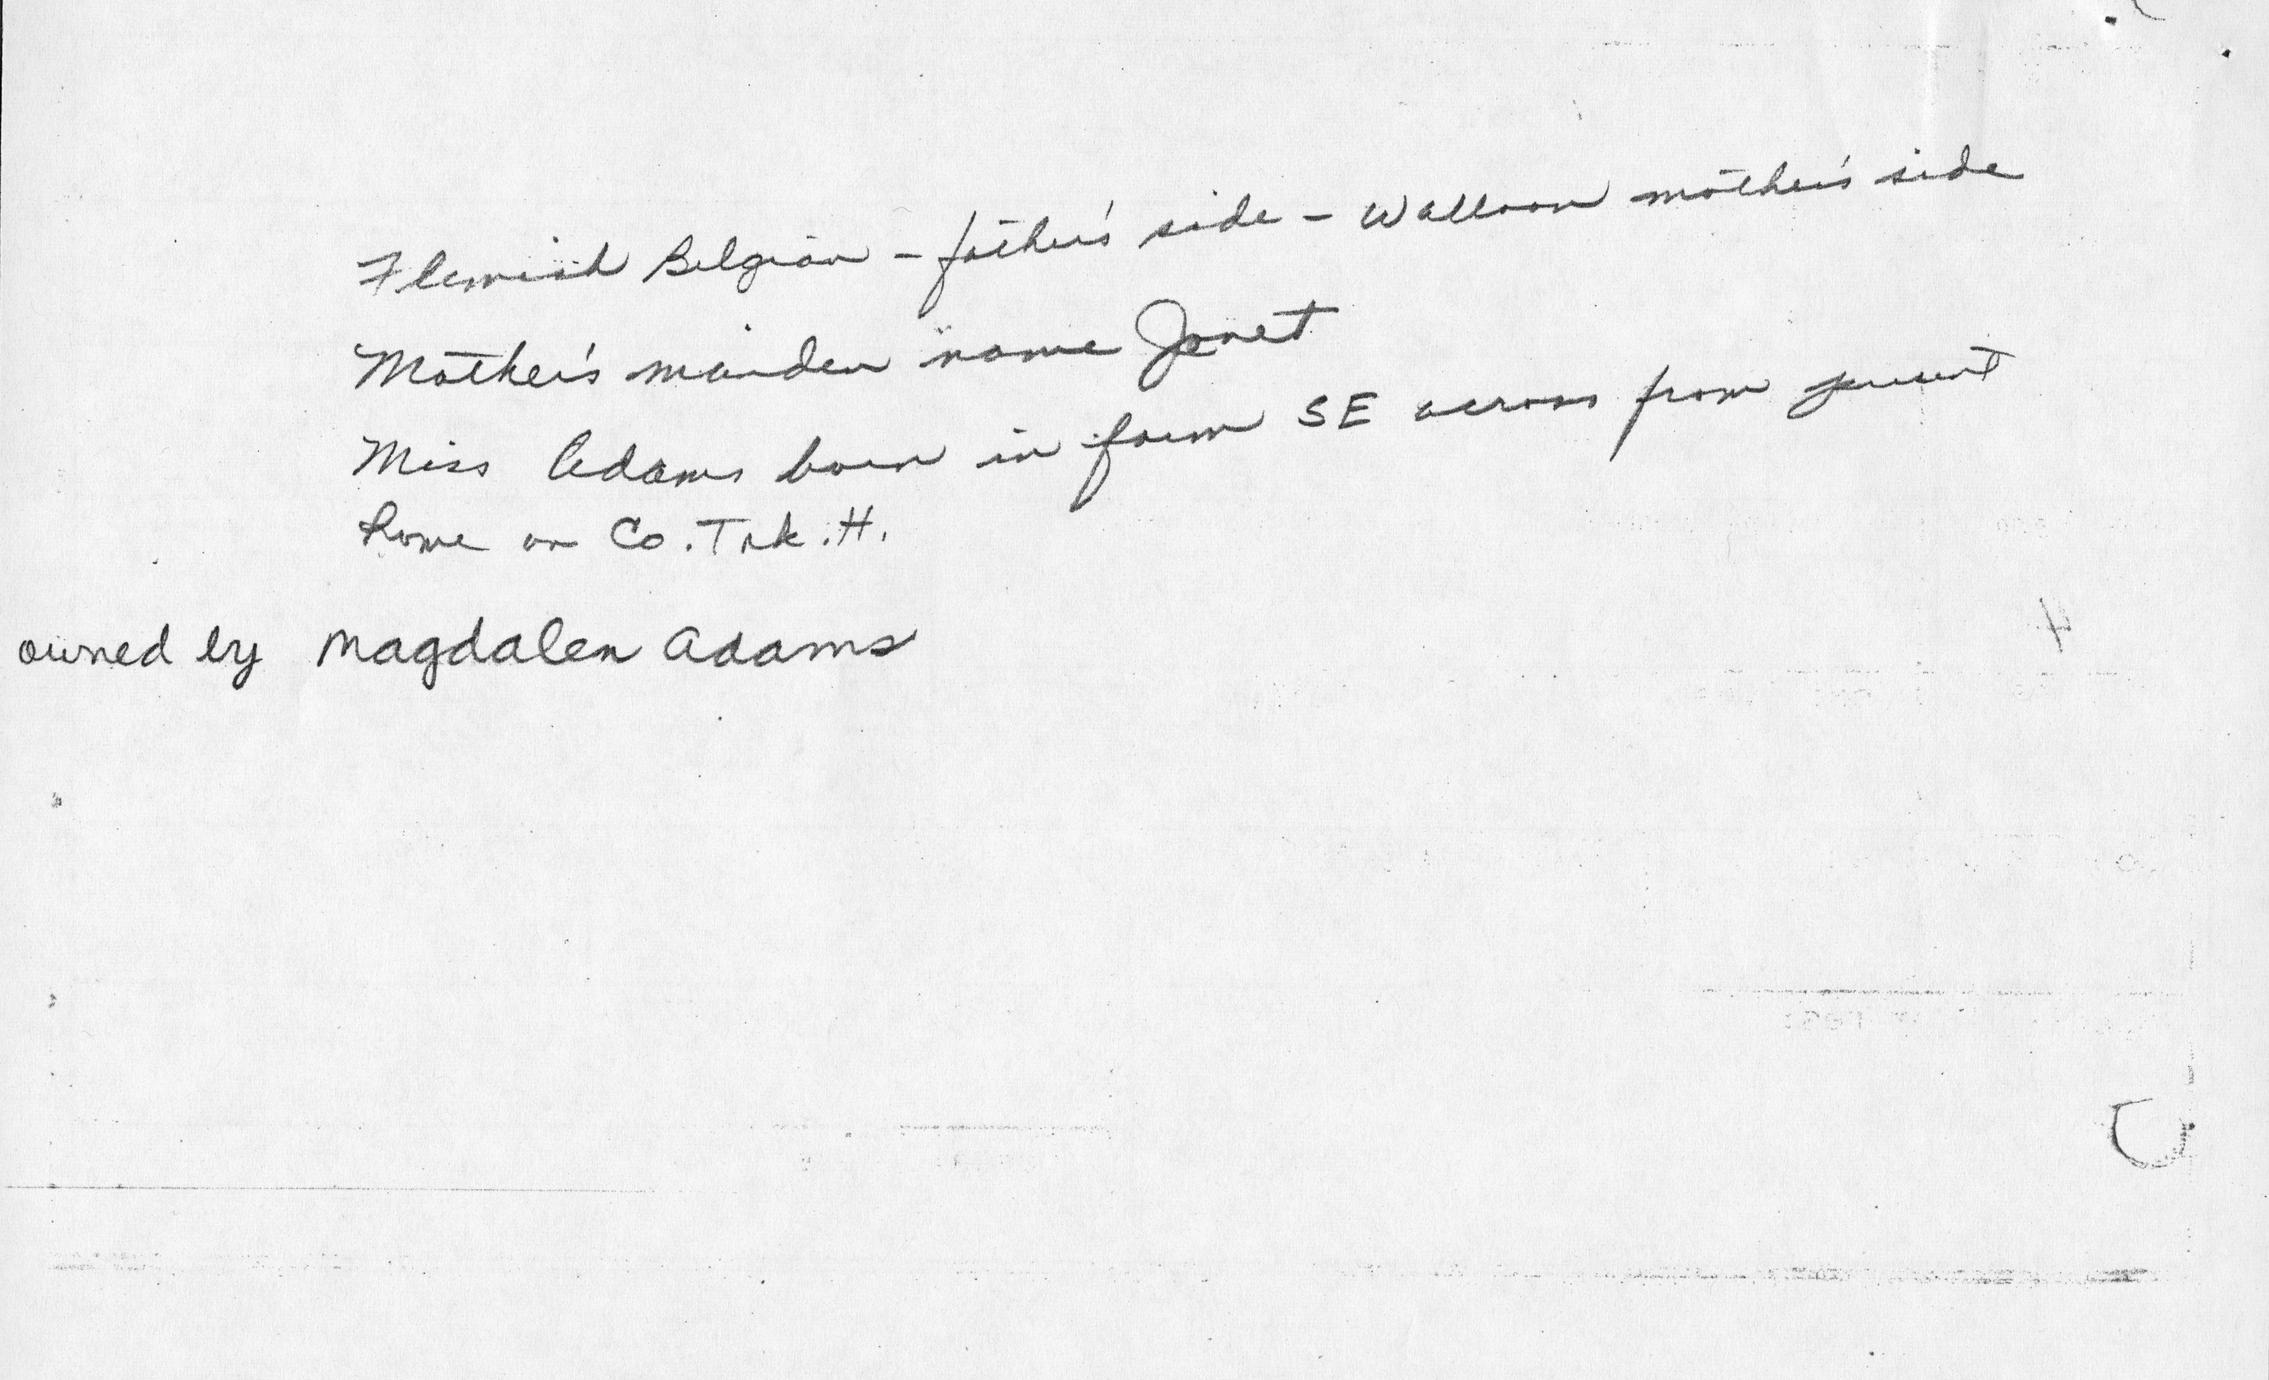 Flemish Belgian - father's side - Walloon mother's side
Mother's maiden name Jonet
Miss Adams born in farm SE across from present
home on Co. Trk. H.
owned by Magdalen Adams
4